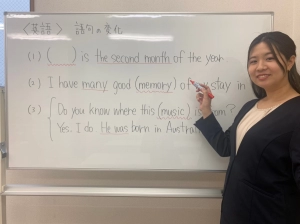 〈英語〉 語句の変化
(1) ( ) is the second month of the year
(2) I have many good (memory) of stay in
(3) Do you know where this (music) is from?
Yes. I do. He was born in Austra